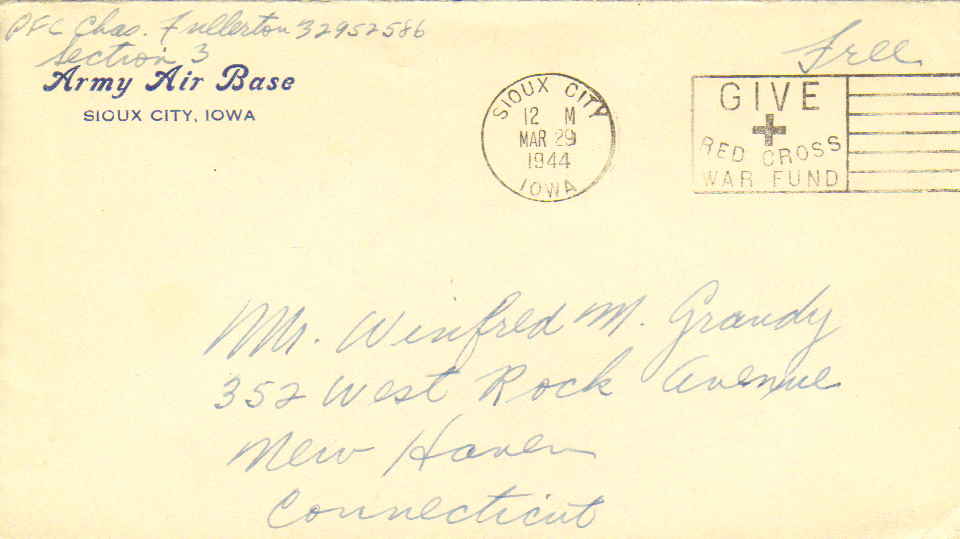 PFC Chas. Fullerton 32952586
Section 3
Army Air Base
SIOUX CITY, IOWA
Free
SIOUX CITY
12 M
MAR 29
1944
IOWA
GIVE
RED CROSS
WAR FUND
Mr. Winfred M. Grandy
352 West Rock Avenue
New Haven
Connecticut